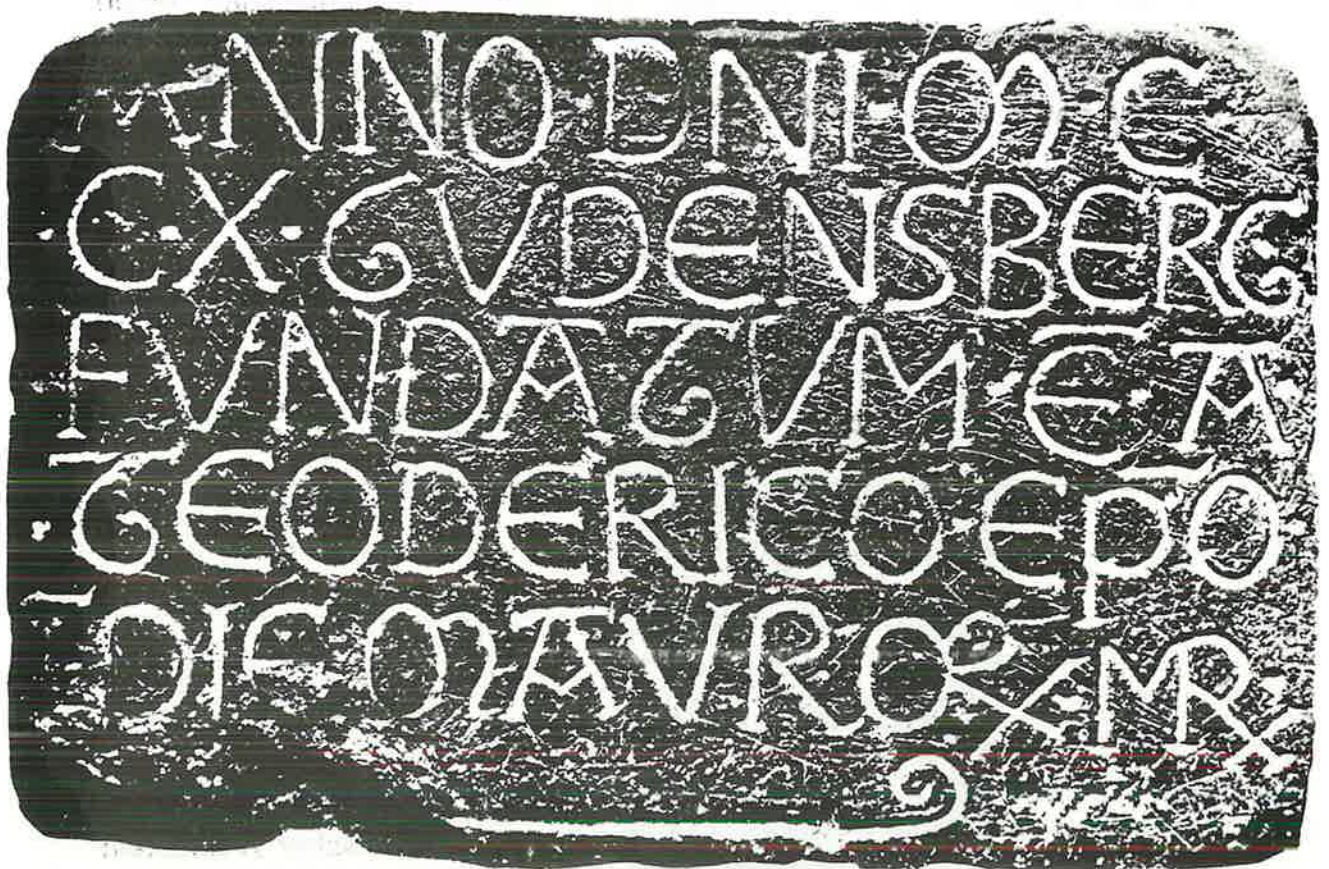 ANNO·DNI·M·C
·C·X·GVDENSBERG
FVNDATVM·E̅·A
TEODERICO·EPO̅
DIE MAVROR̅·MR̅